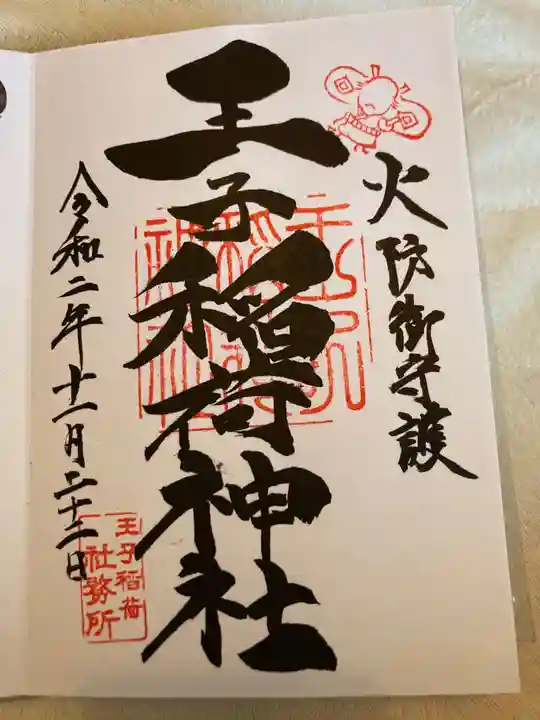 火防御守護
王子稲荷神社
王子稲荷神社
令和二年十一月二十二日
王子稲荷
社務所